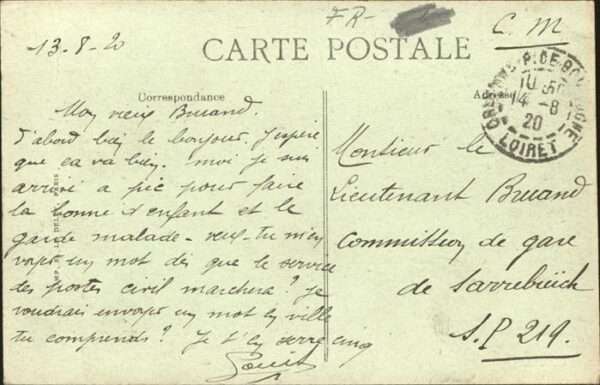 FR-
C. M
13-8-20
CARTE POSTALE
Correspondance
Adresse
ORLEANS P. DE BOURGOGNE
10 50
14 -8
20
LOIRET
Mon vieux Bruand.
D'abord bien le bonjour. J'espère
que ça va bien. moi je suis
arrivé a pic pour faire
la bonne d'enfant et le
garde malade - veux-tu m'en
voyer un mot dès que le service
des postes civil marchera? Je
voudrais envoyer un mot en ville
tu comprends? Je t'en serre cinq
Monsieur le
Lieutenant Bruand
Commission de gare
de Sarrebrück
S.P 219.